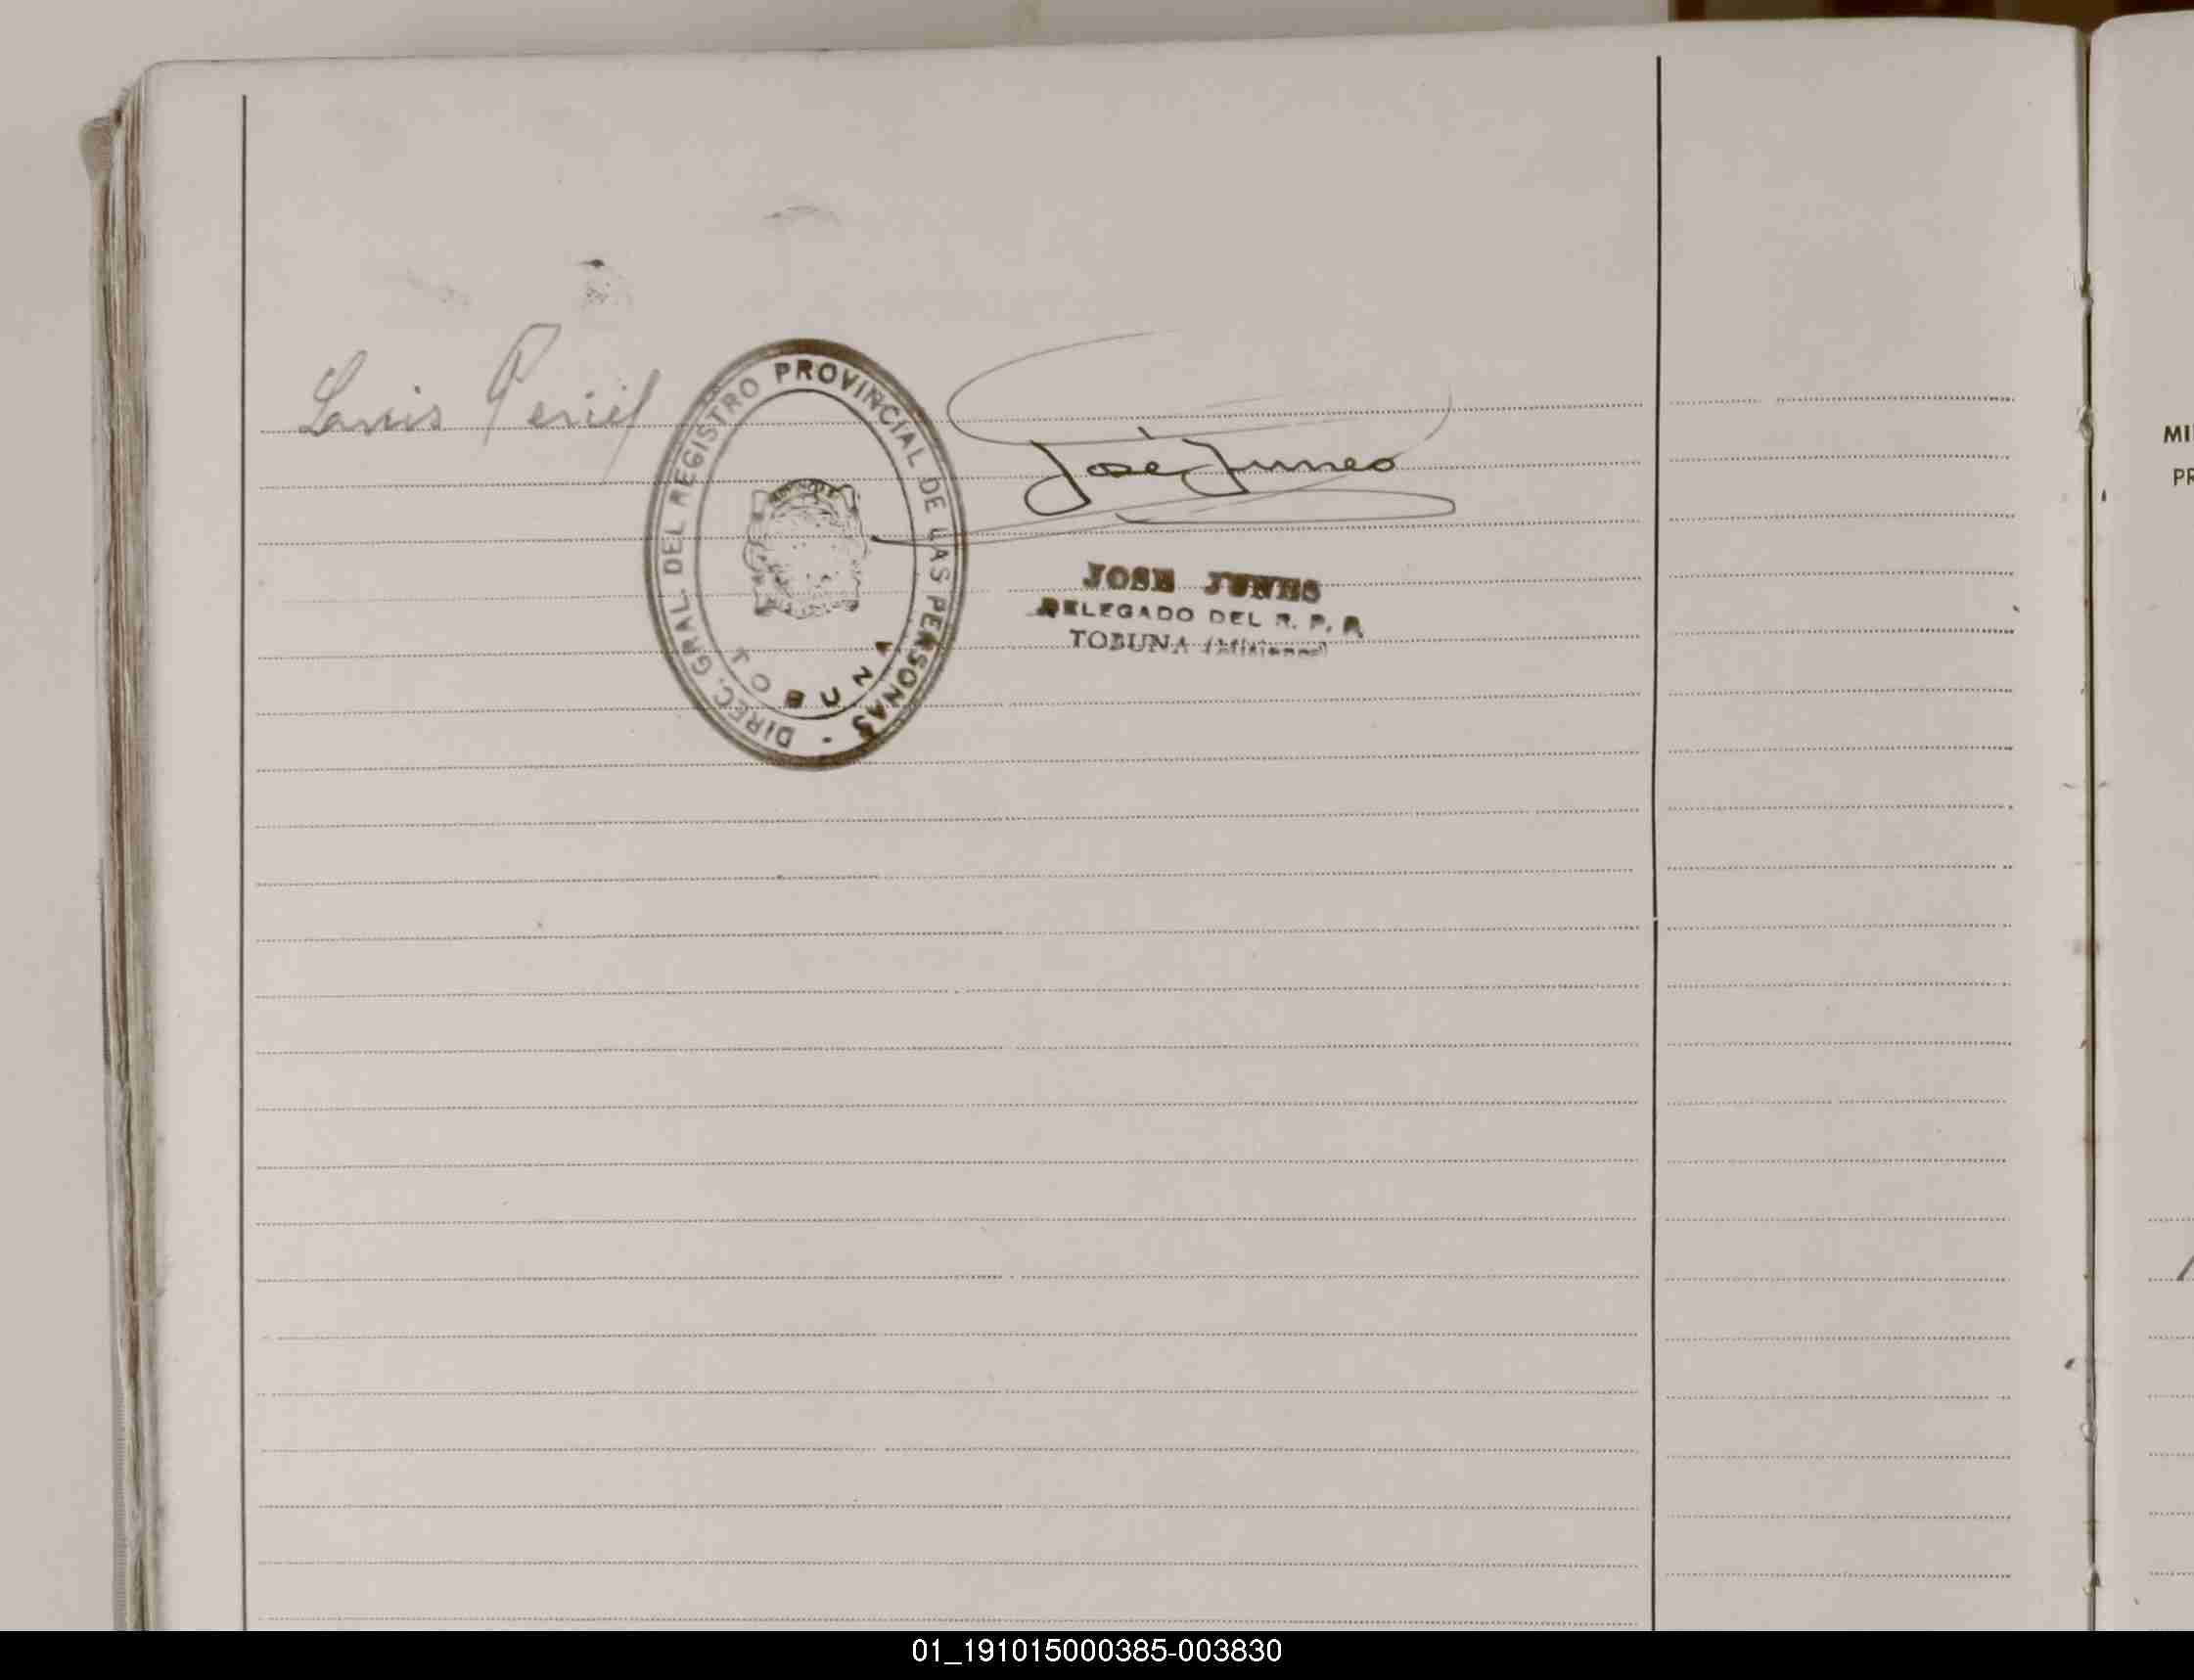 Luis
DIREC. GRAL. DEL REGISTRO PROVINCIAL DE LAS PERSONAS -
TOBUNA
José Junes
JOSE JUNES
DELEGADO DEL R. P. P.
TOBUNA (Misiones)
MI
PR
01_191015000385-003830